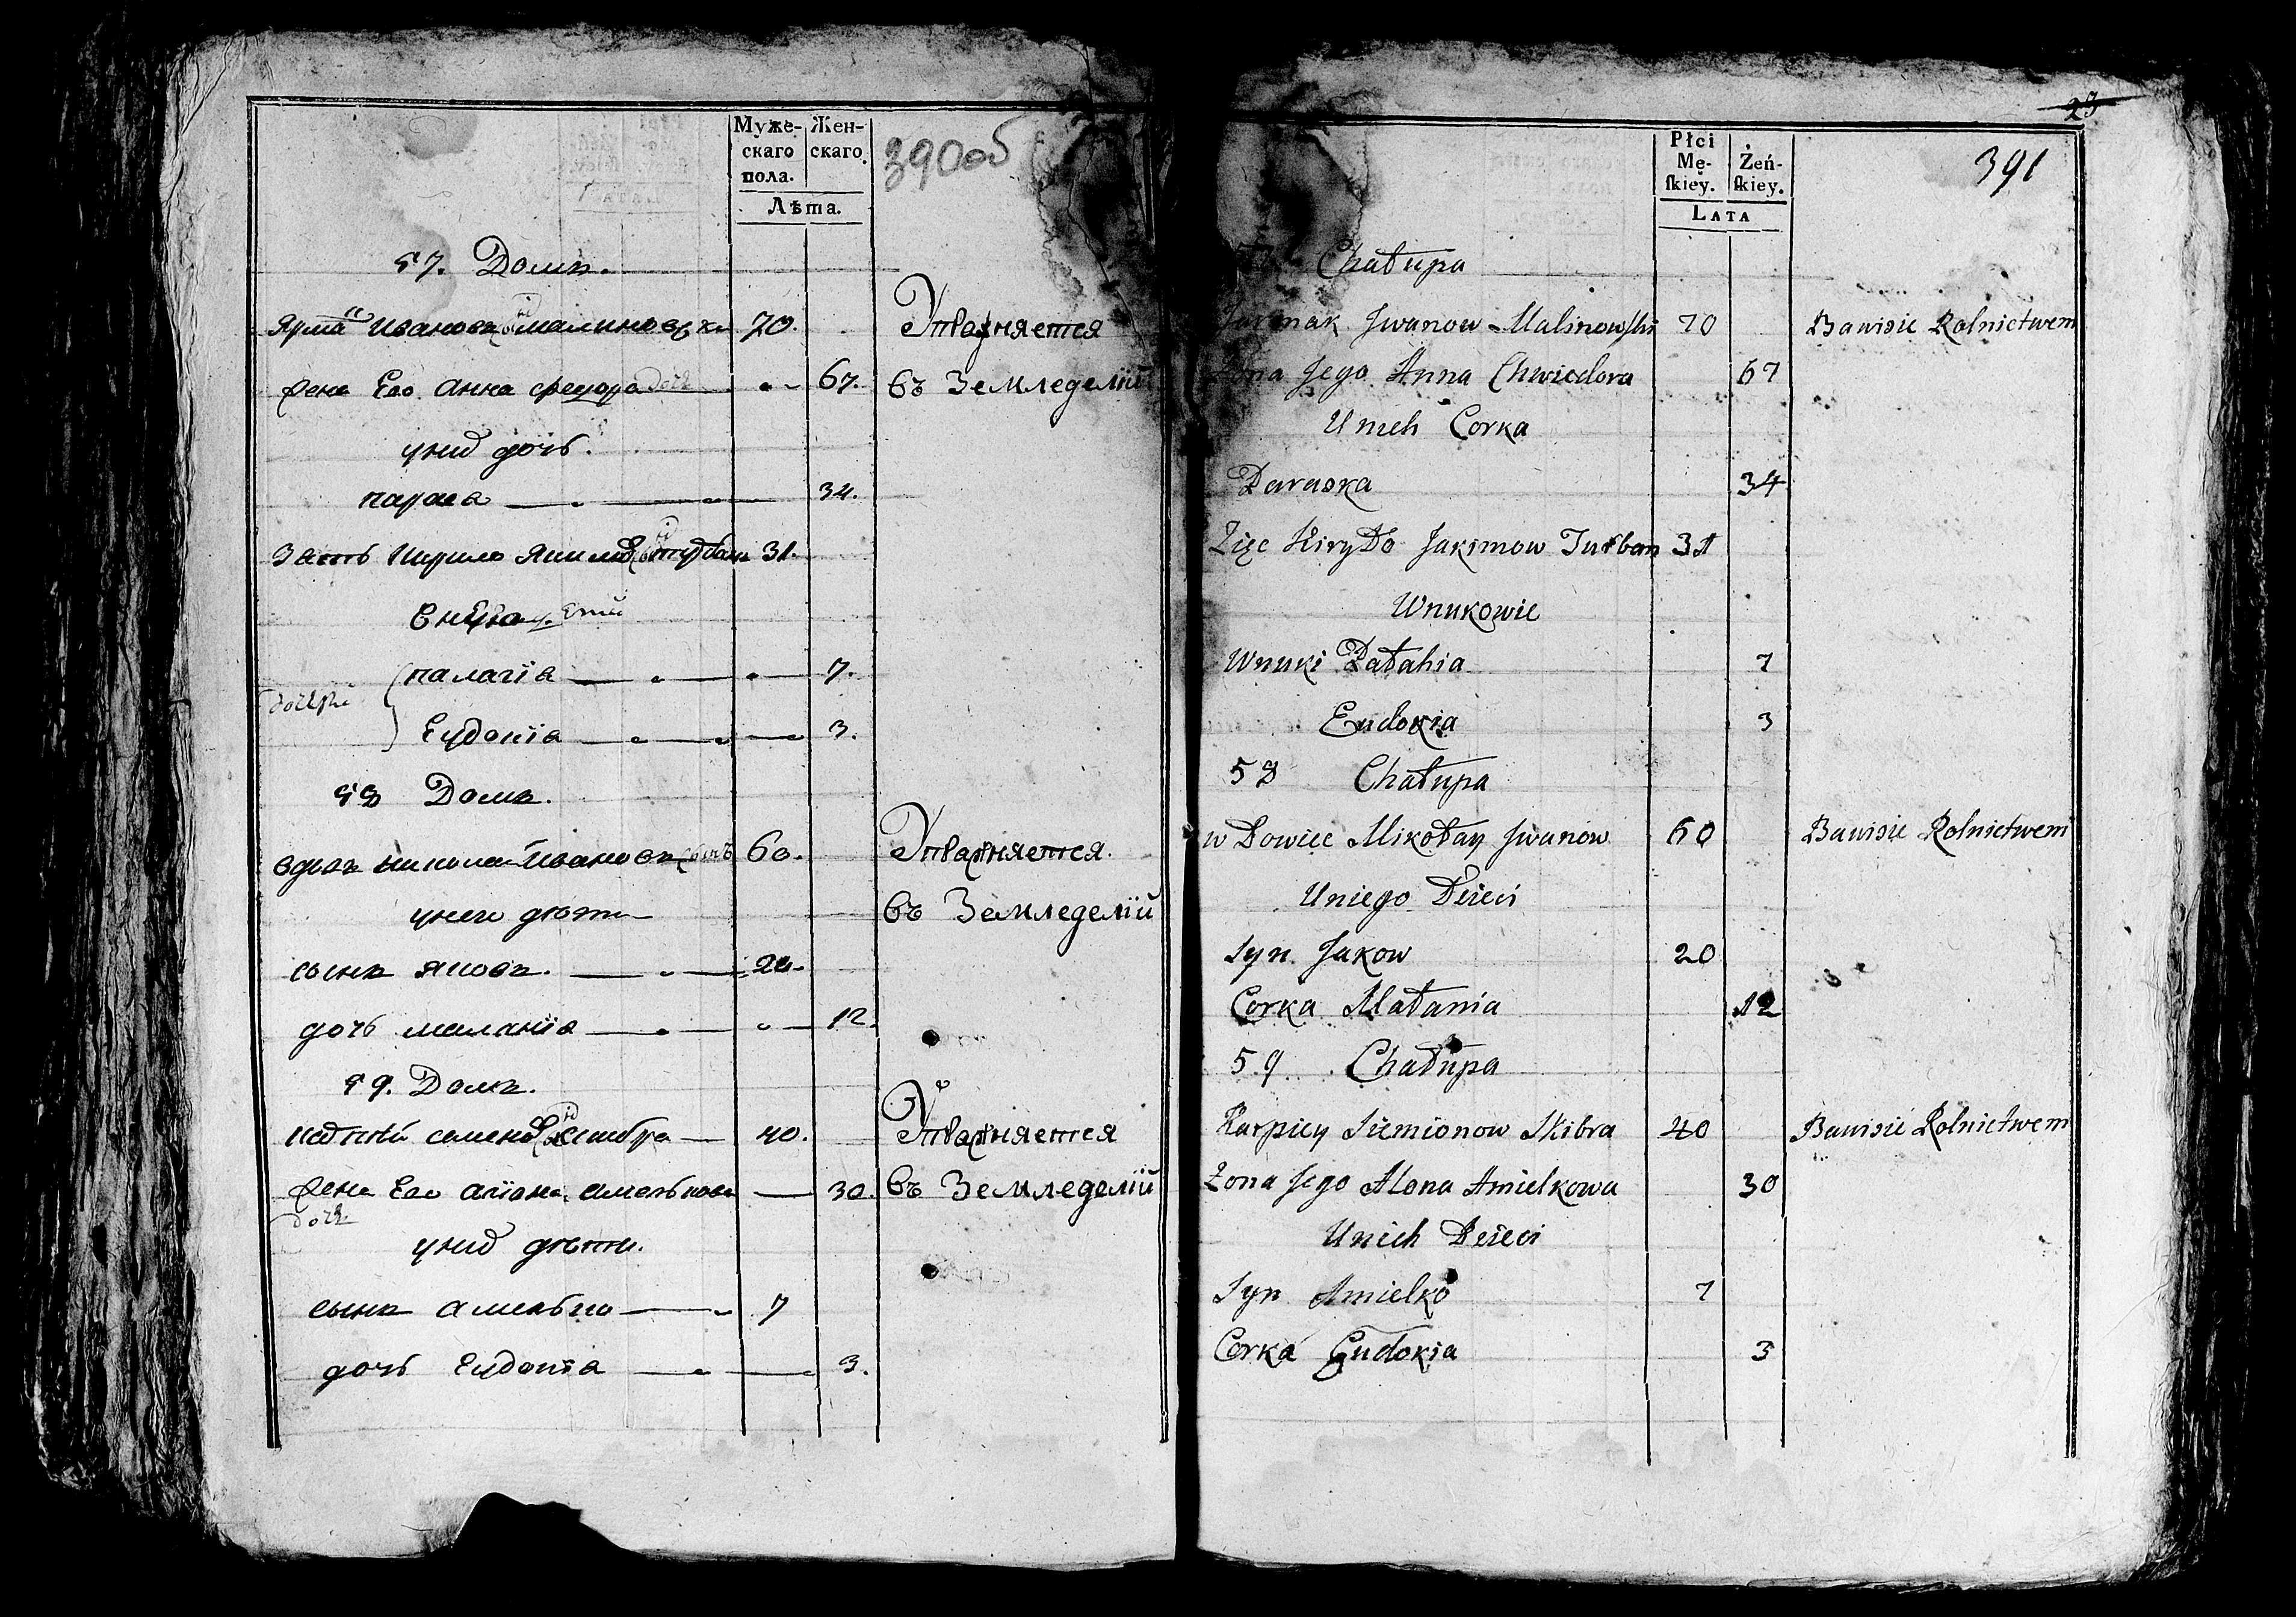 Муже-
скаго
пола.
Жен-
скаго.
Лѣта.
390об
57. Домъ.
Ярмакъ Ивановъ Малиновскъ 70.
Упражняется
жена Его Анна Федора дочь 67.
въ Земледелiй
унид дочь.
параса 34.
Зять Кирило Якимов Турбанъ 31.
Внуки Ети
дочери
палагiа 7.
Еудокiа 3.
58 Домъ.
вдовъ николай Ивановъ сынъ 60.
Упражняется.
унего дѣти
въ Земледелiй
сынъ яковъ. 20.
дочь маланiа 12.
59. Домъ.
карпѣй семенов Скибра 40.
Упражняется
жена Его алiона амелькова 30.
въ Земледелiй
дочь
унид дѣти.
сынъ амелько 7
дочь Еудокiа 3.
23
391
Płci
Mę-
ſkiey.
Żeń-
ſkiey.
LATA
Chałupa
Jarmak Jwanow Malinowſki 70 Bawisie Rolnictwem
Żona Jego Anna Chwiedora 67
Unich Corka
Paraska 34
Zięc Kiryło Jakimow Turban 31
Wnukowie
Wnuki Pałahia 7
Eudokia 3
58 Chałupa
wdowiec Mikołay Jwanow 60 Bawisie Rolnictwem
Uniego Dzieci
Syn Jakow 20
Corka Małania 12
59 Chałupa
Karpiey Siemionow Skibra 40 Bawisie Rolnictwem
Żona Jego Alona Amielkowa 30
Unich Dzieci
Syn Amielko 7
Corka Eudokia 3